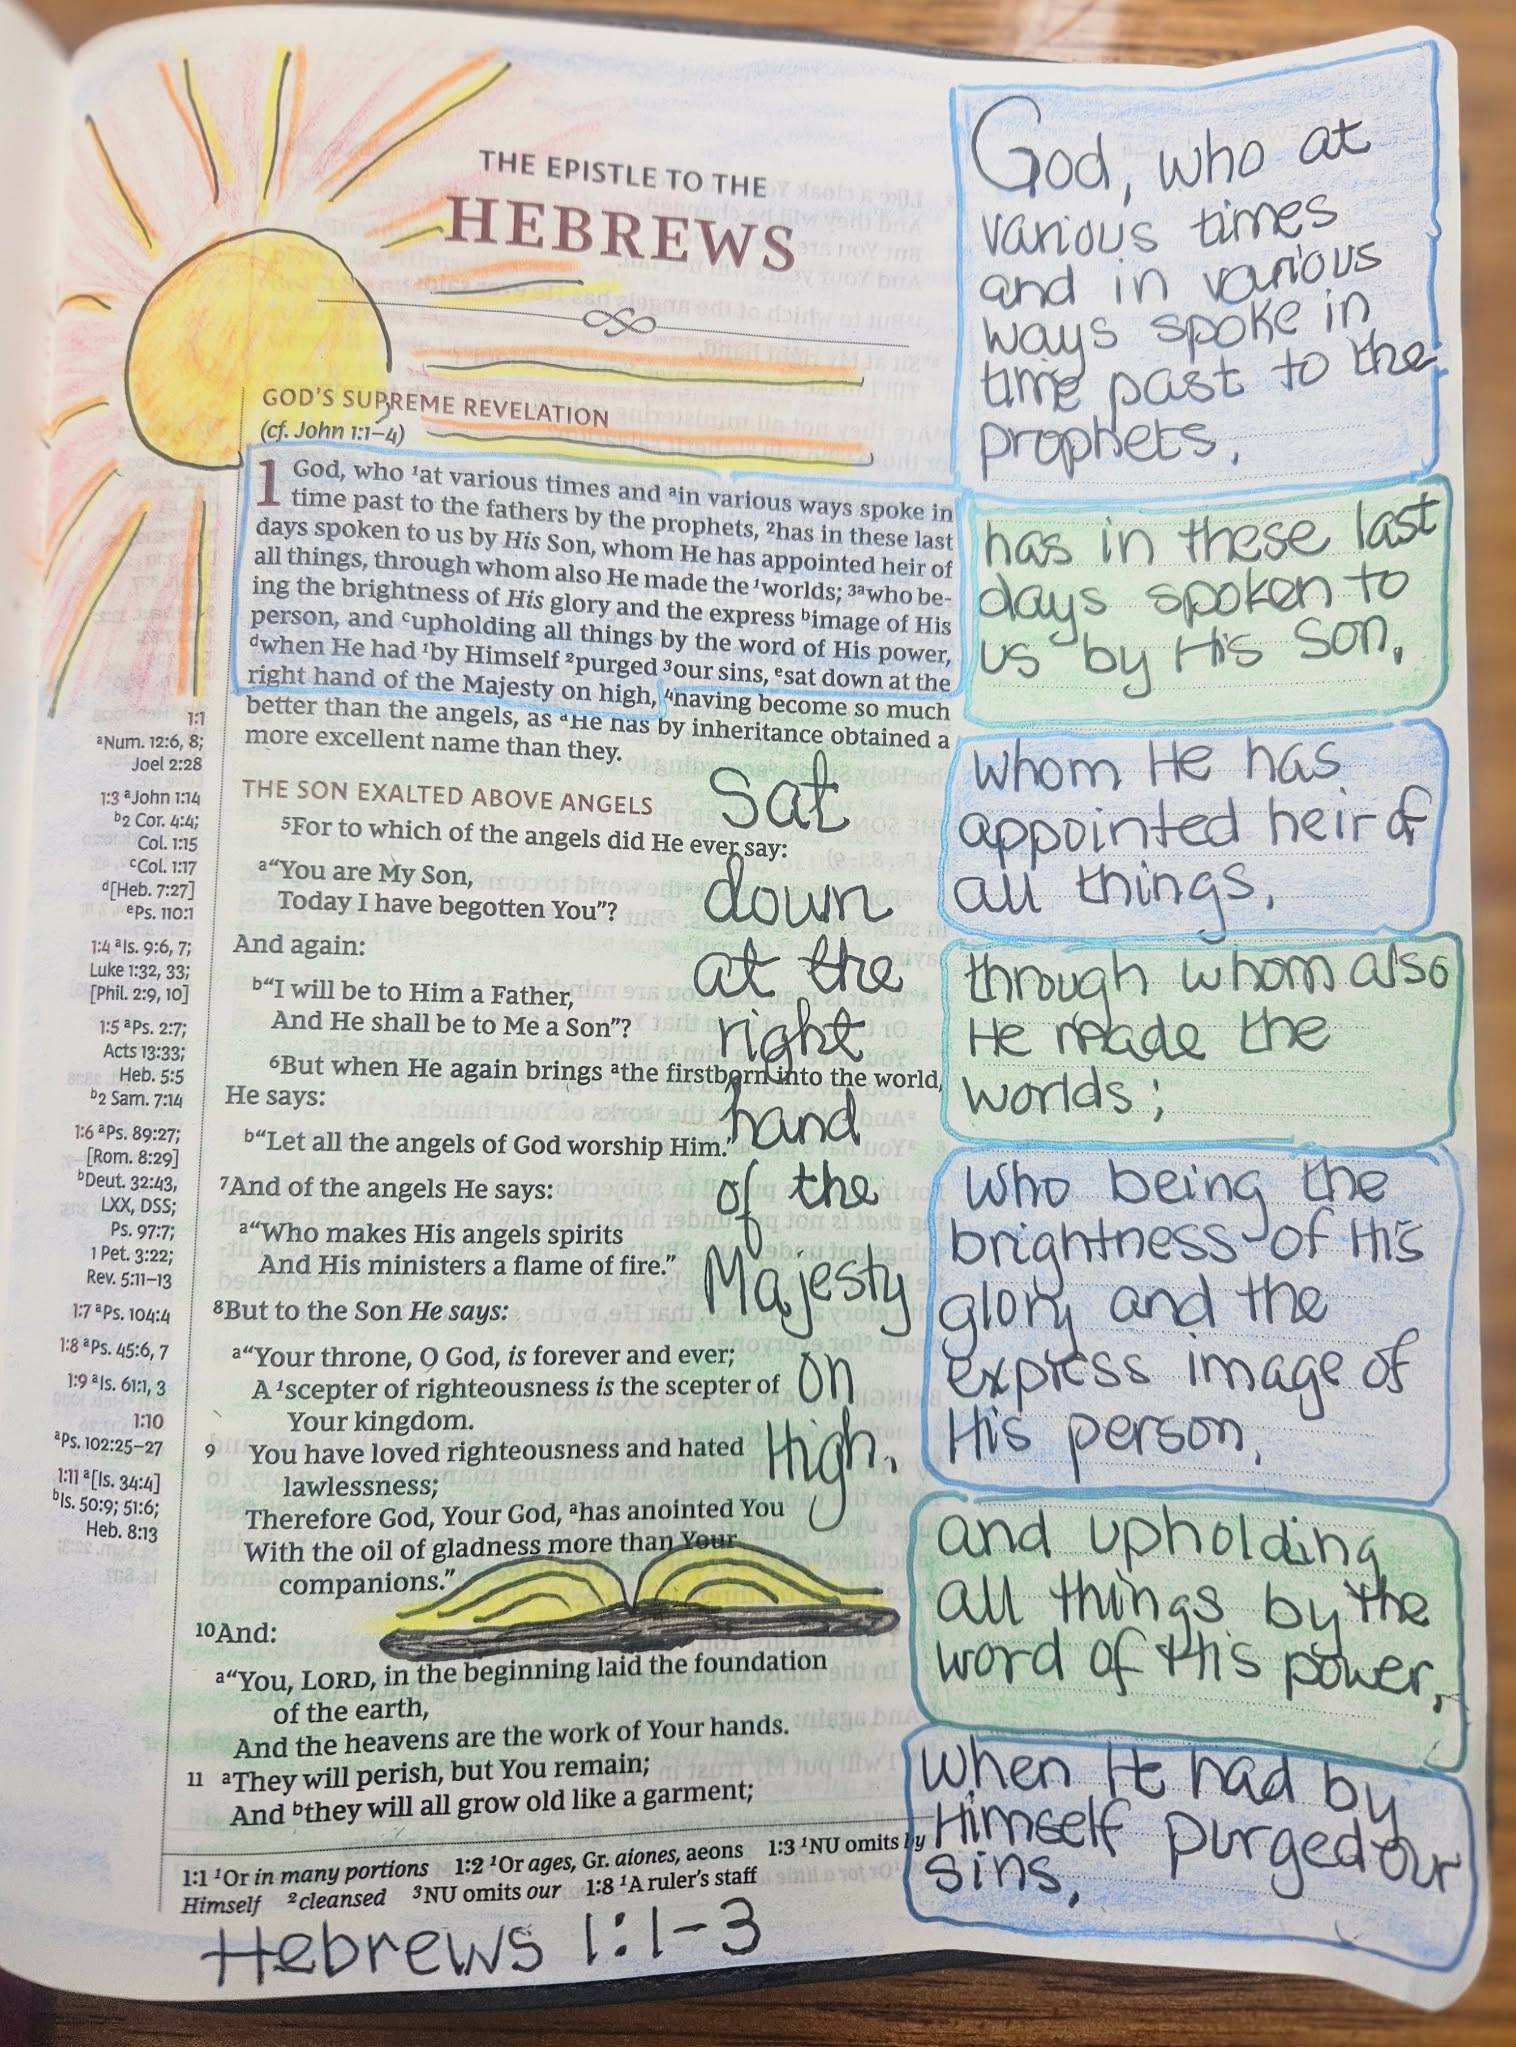 THE EPISTLE TO THE
HEBREWS
GOD'S SUPREME REVELATION
(cf. John 1:1–4)
1 God, who ¹at various times and ᵃin various ways spoke in
time past to the fathers by the prophets, ²has in these last
days spoken to us by His Son, whom He has appointed heir of
all things, through whom also He made the ¹worlds; ³ᵃwho be-
ing the brightness of His glory and the express ᵇimage of His
person, and ᶜupholding all things by the word of His power,
ᵈwhen He had ¹by Himself ²purged ³our sins, ᵉsat down at the
right hand of the Majesty on high, ⁴having become so much
better than the angels, as ᵃHe has by inheritance obtained a
more excellent name than they.
THE SON EXALTED ABOVE ANGELS
⁵For to which of the angels did He ever say:
ᵃ“You are My Son,
Today I have begotten You”?
And again:
ᵇ“I will be to Him a Father,
And He shall be to Me a Son”?
⁶But when He again brings ᵃthe firstborn into the world,
He says:
ᵇ“Let all the angels of God worship Him.”
⁷And of the angels He says:
ᵃ“Who makes His angels spirits
And His ministers a flame of fire.”
⁸But to the Son He says:
ᵃ“Your throne, O God, is forever and ever;
A ¹scepter of righteousness is the scepter of
Your kingdom.
9 You have loved righteousness and hated
lawlessness;
Therefore God, Your God, ᵃhas anointed You
With the oil of gladness more than Your
companions.”
¹⁰And:
ᵃ“You, LORD, in the beginning laid the foundation
of the earth,
And the heavens are the work of Your hands.
11 ᵃThey will perish, but You remain;
And ᵇthey will all grow old like a garment;
1:1
ᵃNum. 12:6, 8;
Joel 2:28
1:3 ᵃJohn 1:14
ᵇ2 Cor. 4:4;
Col. 1:15
ᶜCol. 1:17
ᵈ[Heb. 7:27]
ᵉPs. 110:1
1:4 ᵃIs. 9:6, 7;
Luke 1:32, 33;
[Phil. 2:9, 10]
1:5 ᵃPs. 2:7;
Acts 13:33;
Heb. 5:5
ᵇ2 Sam. 7:14
1:6 ᵃPs. 89:27;
[Rom. 8:29]
ᵇDeut. 32:43,
LXX, DSS;
Ps. 97:7;
1 Pet. 3:22;
Rev. 5:11–13
1:7 ᵃPs. 104:4
1:8 ᵃPs. 45:6, 7
1:9 ᵃIs. 61:1, 3
1:10
ᵃPs. 102:25–27
1:11 ᵃ[Is. 34:4]
ᵇIs. 50:9; 51:6;
Heb. 8:13
1:1 ¹Or in many portions 1:2 ¹Or ages, Gr. aiones, aeons 1:3 ¹NU omits by
Himself ²cleansed ³NU omits our 1:8 ¹A ruler's staff
God, who at
various times
and in various
ways spoke in
time past to the
prophets,
has in these last
days spoken to
us by His Son,
whom He has
appointed heir of
all things,
through whom also
He made the
worlds;
who being the
brightness of His
glory and the
express image of
His person,
and upholding
all things by the
word of His power,
when He had by
Himself purged our
sins,
Sat
down
at the
right
hand
of the
Majesty
on
High.
Hebrews 1:1-3